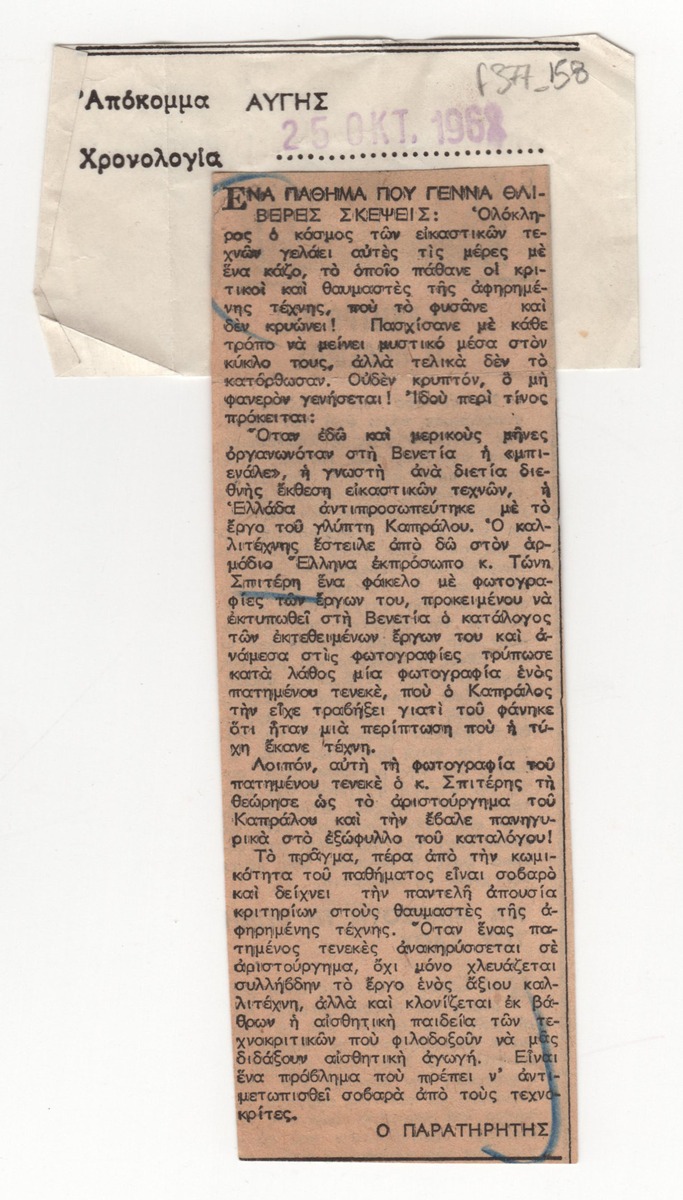 f377_158
Ἀπόκομμα ΑΥΓΗΣ
25 ΟΚΤ. 1962
Χρονολογία
ΕΝΑ ΠΑΘΗΜΑ ΠΟΥ ΓΕΝΝΑ ΘΛΙ-
ΒΕΡΕΣ ΣΚΕΨΕΙΣ: Ὁλόκλη-
ρος ὁ κόσμος τῶν εἰκαστικῶν τε-
χνῶν γελάει αὐτὲς τὶς μέρες μὲ
ἕνα κάζο, τὸ ὁποῖο πάθανε οἱ κρι-
τικοὶ καὶ θαυμαστὲς τῆς ἀφηρημέ-
νης τέχνης, ποὺ τὸ φυσᾶνε καὶ
δὲν κρυώνει! Πασχίσανε μὲ κάθε
τρόπο νὰ μείνει μυστικὸ μέσα στὸν
κύκλο τους, ἀλλὰ τελικὰ δὲν τὸ
κατόρθωσαν. Οὐδὲν κρυπτόν, ὃ μὴ
φανερὸν γενήσεται! Ἰδοὺ περὶ τίνος
πρόκειται:
Ὅταν ἐδῶ καὶ μερικοὺς μῆνες
ὀργανωνόταν στὴ Βενετία ἡ «μπι-
ενάλε», ἡ γνωστὴ ἀνὰ διετία διε-
θνὴς ἔκθεση εἰκαστικῶν τεχνῶν, ἡ
Ἑλλάδα ἀντιπροσωπεύτηκε μὲ τὸ
ἔργο τοῦ γλύπτη Καπράλου. Ὁ καλ-
λιτέχνης ἔστειλε ἀπὸ δῶ στὸν ἁρ-
μόδιο Ἕλληνα ἐκπρόσωπο κ. Τώνη
Σπιτέρη ἕνα φάκελο μὲ φωτογρα-
φίες τῶν ἔργων του, προκειμένου νὰ
ἐκτυπωθεῖ στὴ Βενετία ὁ κατάλογος
τῶν ἐκτεθειμένων ἔργων του καὶ ἀ-
νάμεσα στὶς φωτογραφίες τρύπωσε
κατὰ λάθος μία φωτογραφία ἑνὸς
πατημένου τενεκὲ, ποὺ ὁ Καπράλος
τὴν εἶχε τραβήξει γιατὶ τοῦ φάνηκε
ὅτι ἦταν μιὰ περίπτωση ποὺ ἡ τύ-
χη ἔκανε τέχνη.
Λοιπόν, αὐτὴ τὴ φωτογραφία τοῦ
πατημένου τενεκὲ ὁ κ. Σπιτέρης τὴ
θεώρησε ὡς τὸ ἀριστούργημα τοῦ
Καπράλου καὶ τὴν ἔβαλε πανηγυ-
ρικὰ στὸ ἐξώφυλλο τοῦ καταλόγου!
Τὸ πρᾶγμα, πέρα ἀπὸ τὴν κωμι-
κότητα τοῦ παθήματος εἶναι σοβαρὸ
καὶ δείχνει τὴν παντελῆ ἀπουσία
κριτηρίων στοὺς θαυμαστὲς τῆς ἀ-
φηρημένης τέχνης. Ὅταν ἕνας πα-
τημένος τενεκὲς ἀνακηρύσσεται σὲ
ἀριστούργημα, ὄχι μόνο χλευάζεται
συλλήβδην τὸ ἔργο ἑνὸς ἄξιου καλ-
λιτέχνη, ἀλλὰ καὶ κλονίζεται ἐκ βά-
θρων ἡ αἰσθητικὴ παιδεία τῶν τε-
χνοκριτικῶν ποὺ φιλοδοξοῦν νὰ μᾶς
διδάξουν αἰσθητικὴ ἀγωγή. Εἶναι
ἕνα πρόβλημα ποὺ πρέπει ν' ἀντι-
μετωπισθεῖ σοβαρὰ ἀπὸ τοὺς τεχνο-
κρίτες.
Ο ΠΑΡΑΤΗΡΗΤΗΣ